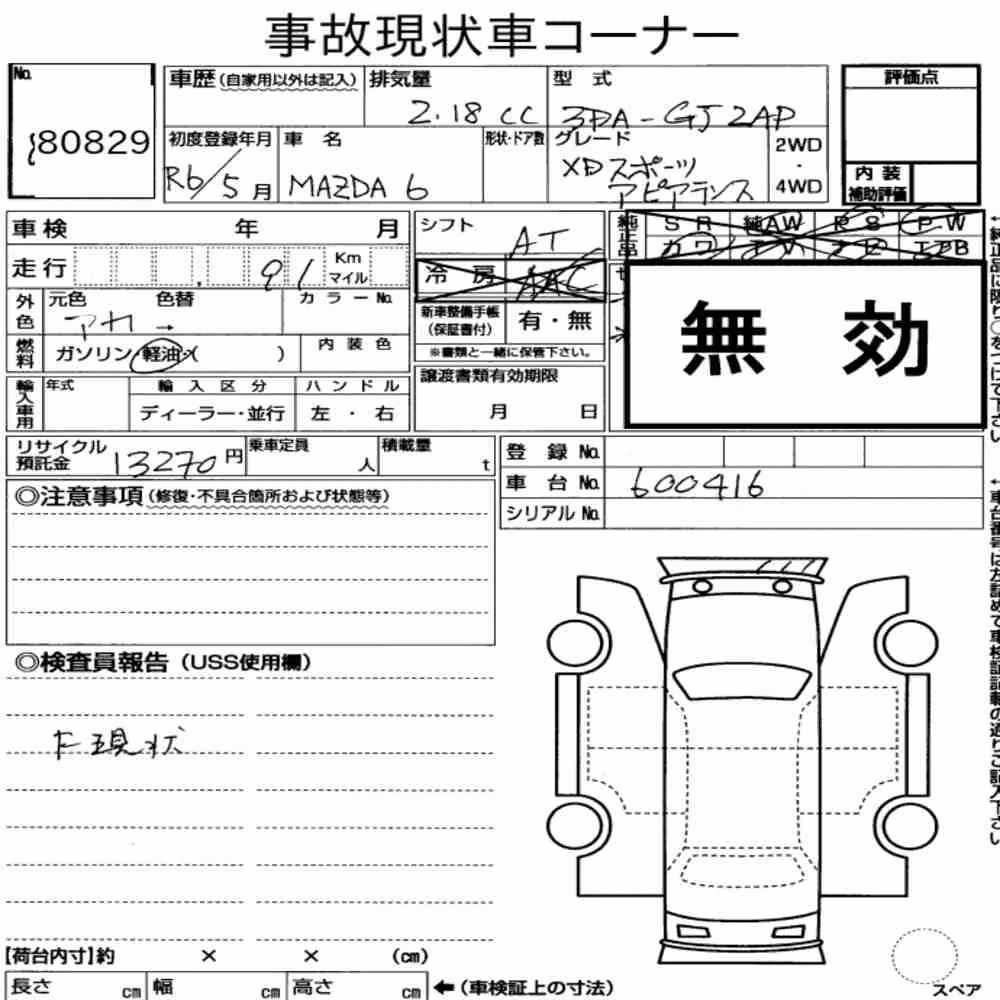 事故現状車コーナー
No.
80829
車歴(自家用以外は記入)
排気量
2.18 CC
型 式
3DA-GJ2AP
評価点
初度登録年月
R6/5月
車 名
MAZDA 6
形状・ドア数
グレード
XDスポーツ
アピアランス
2WD
・
4WD
内 装
補助評価
車検 年 月
シフト
AT
純正品
S R 純AW P W
カワ T V エアB
走行
91
Km
マイル
冷 房 AAC
外色
元色 色替
アカ→
カ ラ ー No.
新車整備手帳
(保証書付)
有・無
※書類と一緒に保管下さい。
無 効
燃料
ガソリン・軽油・( )
内 装 色
輸入車用
年式
輸 入 区 分
ディーラー・並行
ハ ン ド ル
左 ・ 右
譲渡書類有効期限
月 日
リサイクル
預託金
13270円
乗車定員
人
積載量
t
登 録 No.
車 台 No.
600416
シリアル No.
◎注意事項(修復・不具合箇所および状態等)
◎検査員報告(USS使用欄)
F現状
【荷台内寸】約 × × (cm)
長さ cm
幅 cm
高さ cm
←(車検証上の寸法)
スペア
←純正品に限り○をつけて下さい
←車台番号は左詰めで車検証記載の通りご記入下さい